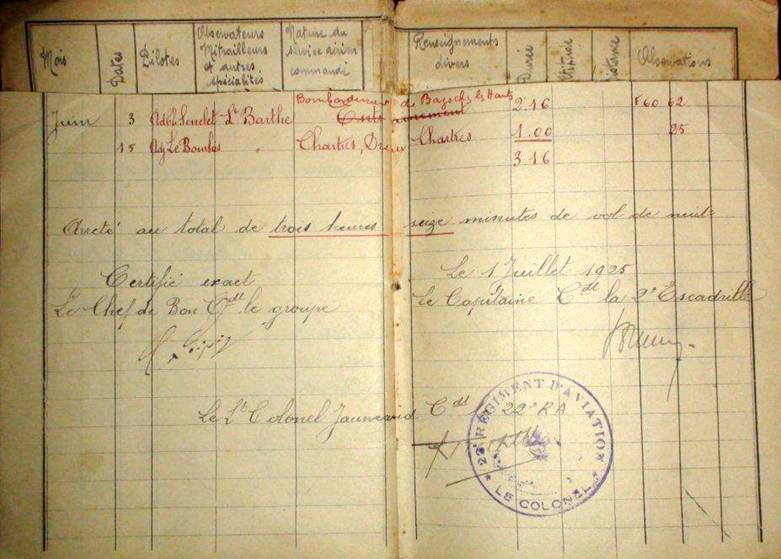 Mois Dates Pilotes Observateurs Mitrailleurs et autres spécialités Nature du service aérien commandé Renseignements divers Durée Distance Observations
Juin 3 Lt Barthe Bombardement de les Hauts 2.16 F60 62
15 Adj Chartres, Dreux Chartres 1.00 25
3.16
Arreté au total de trois heures seize minutes de vol de nuit
Certifié exact
Le Chef de Bon Cdt le groupe
Le 1 Juillet 1925
Le Capitaine Cdt la 2e Escadrille
Le Lt Colonel Cdt le 22e RA
22e REGIMENT D'AVIATION
* LE COLONEL *